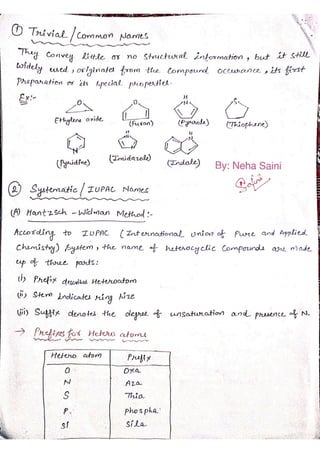 ① Trivial / Common Names
They Convey little or no structural information, but it still
widely used, originated from the Compound occurance, its first
Preparation or its special properties.
Ex:-
O
Ethylene oxide
O
(furan)
H
N
(Pyrrole)
S
(Thiophene)
N
(Pyridine)
H
N
N
(Imidazole)
H
N
(Indole)
By: Neha Saini
Saini
② Systematic / IUPAC Names
(A) Hantzsch - Widman Method:-
According to IUPAC (International union of Pure and Applied
Chemistry) System, the name of heterocyclic Compounds are made
up of three parts:
(i) Prefix describes Heteroatom
(ii) Stem indicates ring size
(iii) Suffix denotes the degree of unsaturation and presence of N.
→ Prefixes for Hetero atoms
Hetero atom Prefix
O Oxa
N Aza
S Thia
P. phospha
Si Sila